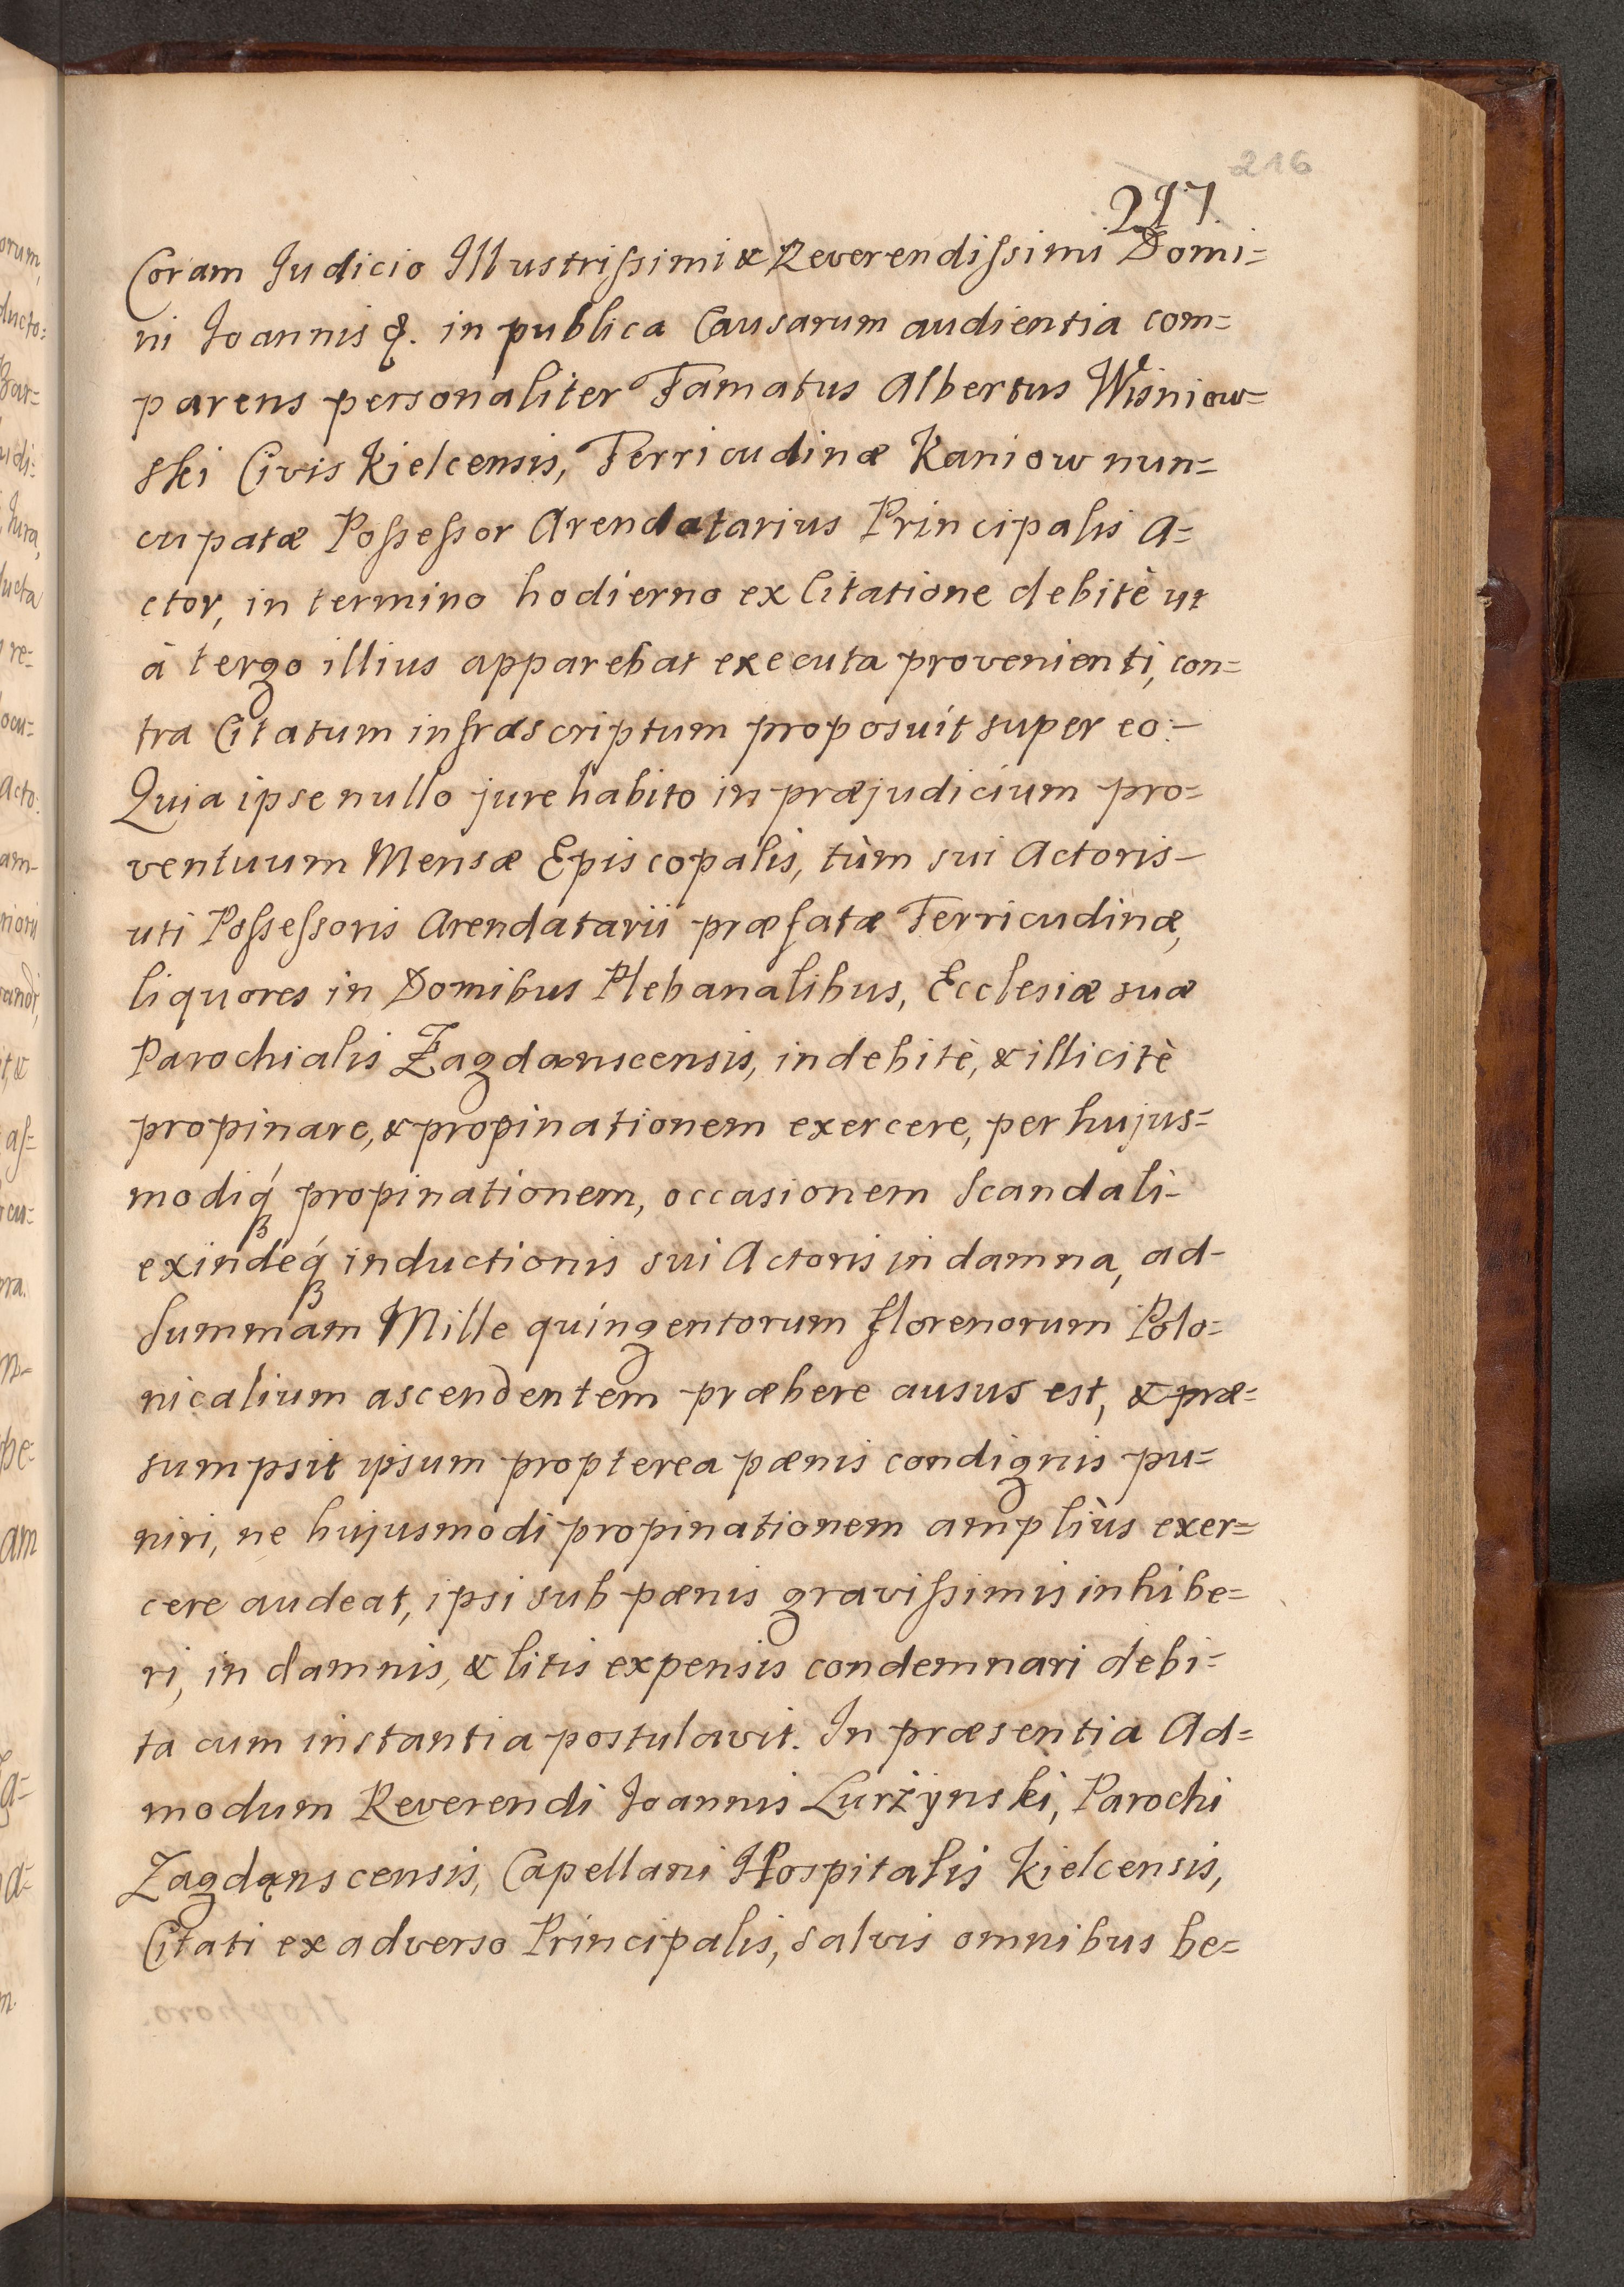 216
217.
Coram Judicio Illustrissimi & Reverendissimi Domi=
ni Joannis &. in publica Causarum audientia com=
parens personaliter Famatus Albertus Wisniow=
ski Civis Kielcensis, Ferricudinæ Kaniow nun=
cupatæ Possessor Arendatarius Principalis A=
ctor, in termino hodierno ex Citatione debitè ut
à tergo illius apparebat executa provenienti, con=
tra Citatum infrascriptum proposuit super eo:-
Quia ipse nullo jure habito in præjudicium pro=
ventuum Mensæ Episcopalis, tùm sui Actoris-
uti Possessoris Arendatarii præfatæ Ferricudinæ,
liquores in Domibus Plebanalibus, Ecclesiæ suæ
Parochialis Zagdanscensis, indebitè, & illicitè
propinare, & propinationem exercere, per hujus=
modiq́ propinationem, occasionem scandali-
exindeq́ inductionis sui Actoris in damna, ad-
summam Mille quingentorum florenorum Polo=
nicalium ascendentem præbere ausus est, & præ=
sumpsit ipsum propterea pænis condignis pu=
niri, ne hujusmodi propinationem ampliùs exer=
cere audeat, ipsi sub pænis gravissimis inhibe=
ri, in damnis, & litis expensis condemnari debi=
ta cum instantia postulavit. In præsentia Ad=
modum Reverendi Joannis Lurżynski, Parochi
Zagdąnscensis, Capellani Hospitalis Kielcensis,
Citati ex adverso Principalis, salvis omnibus be=